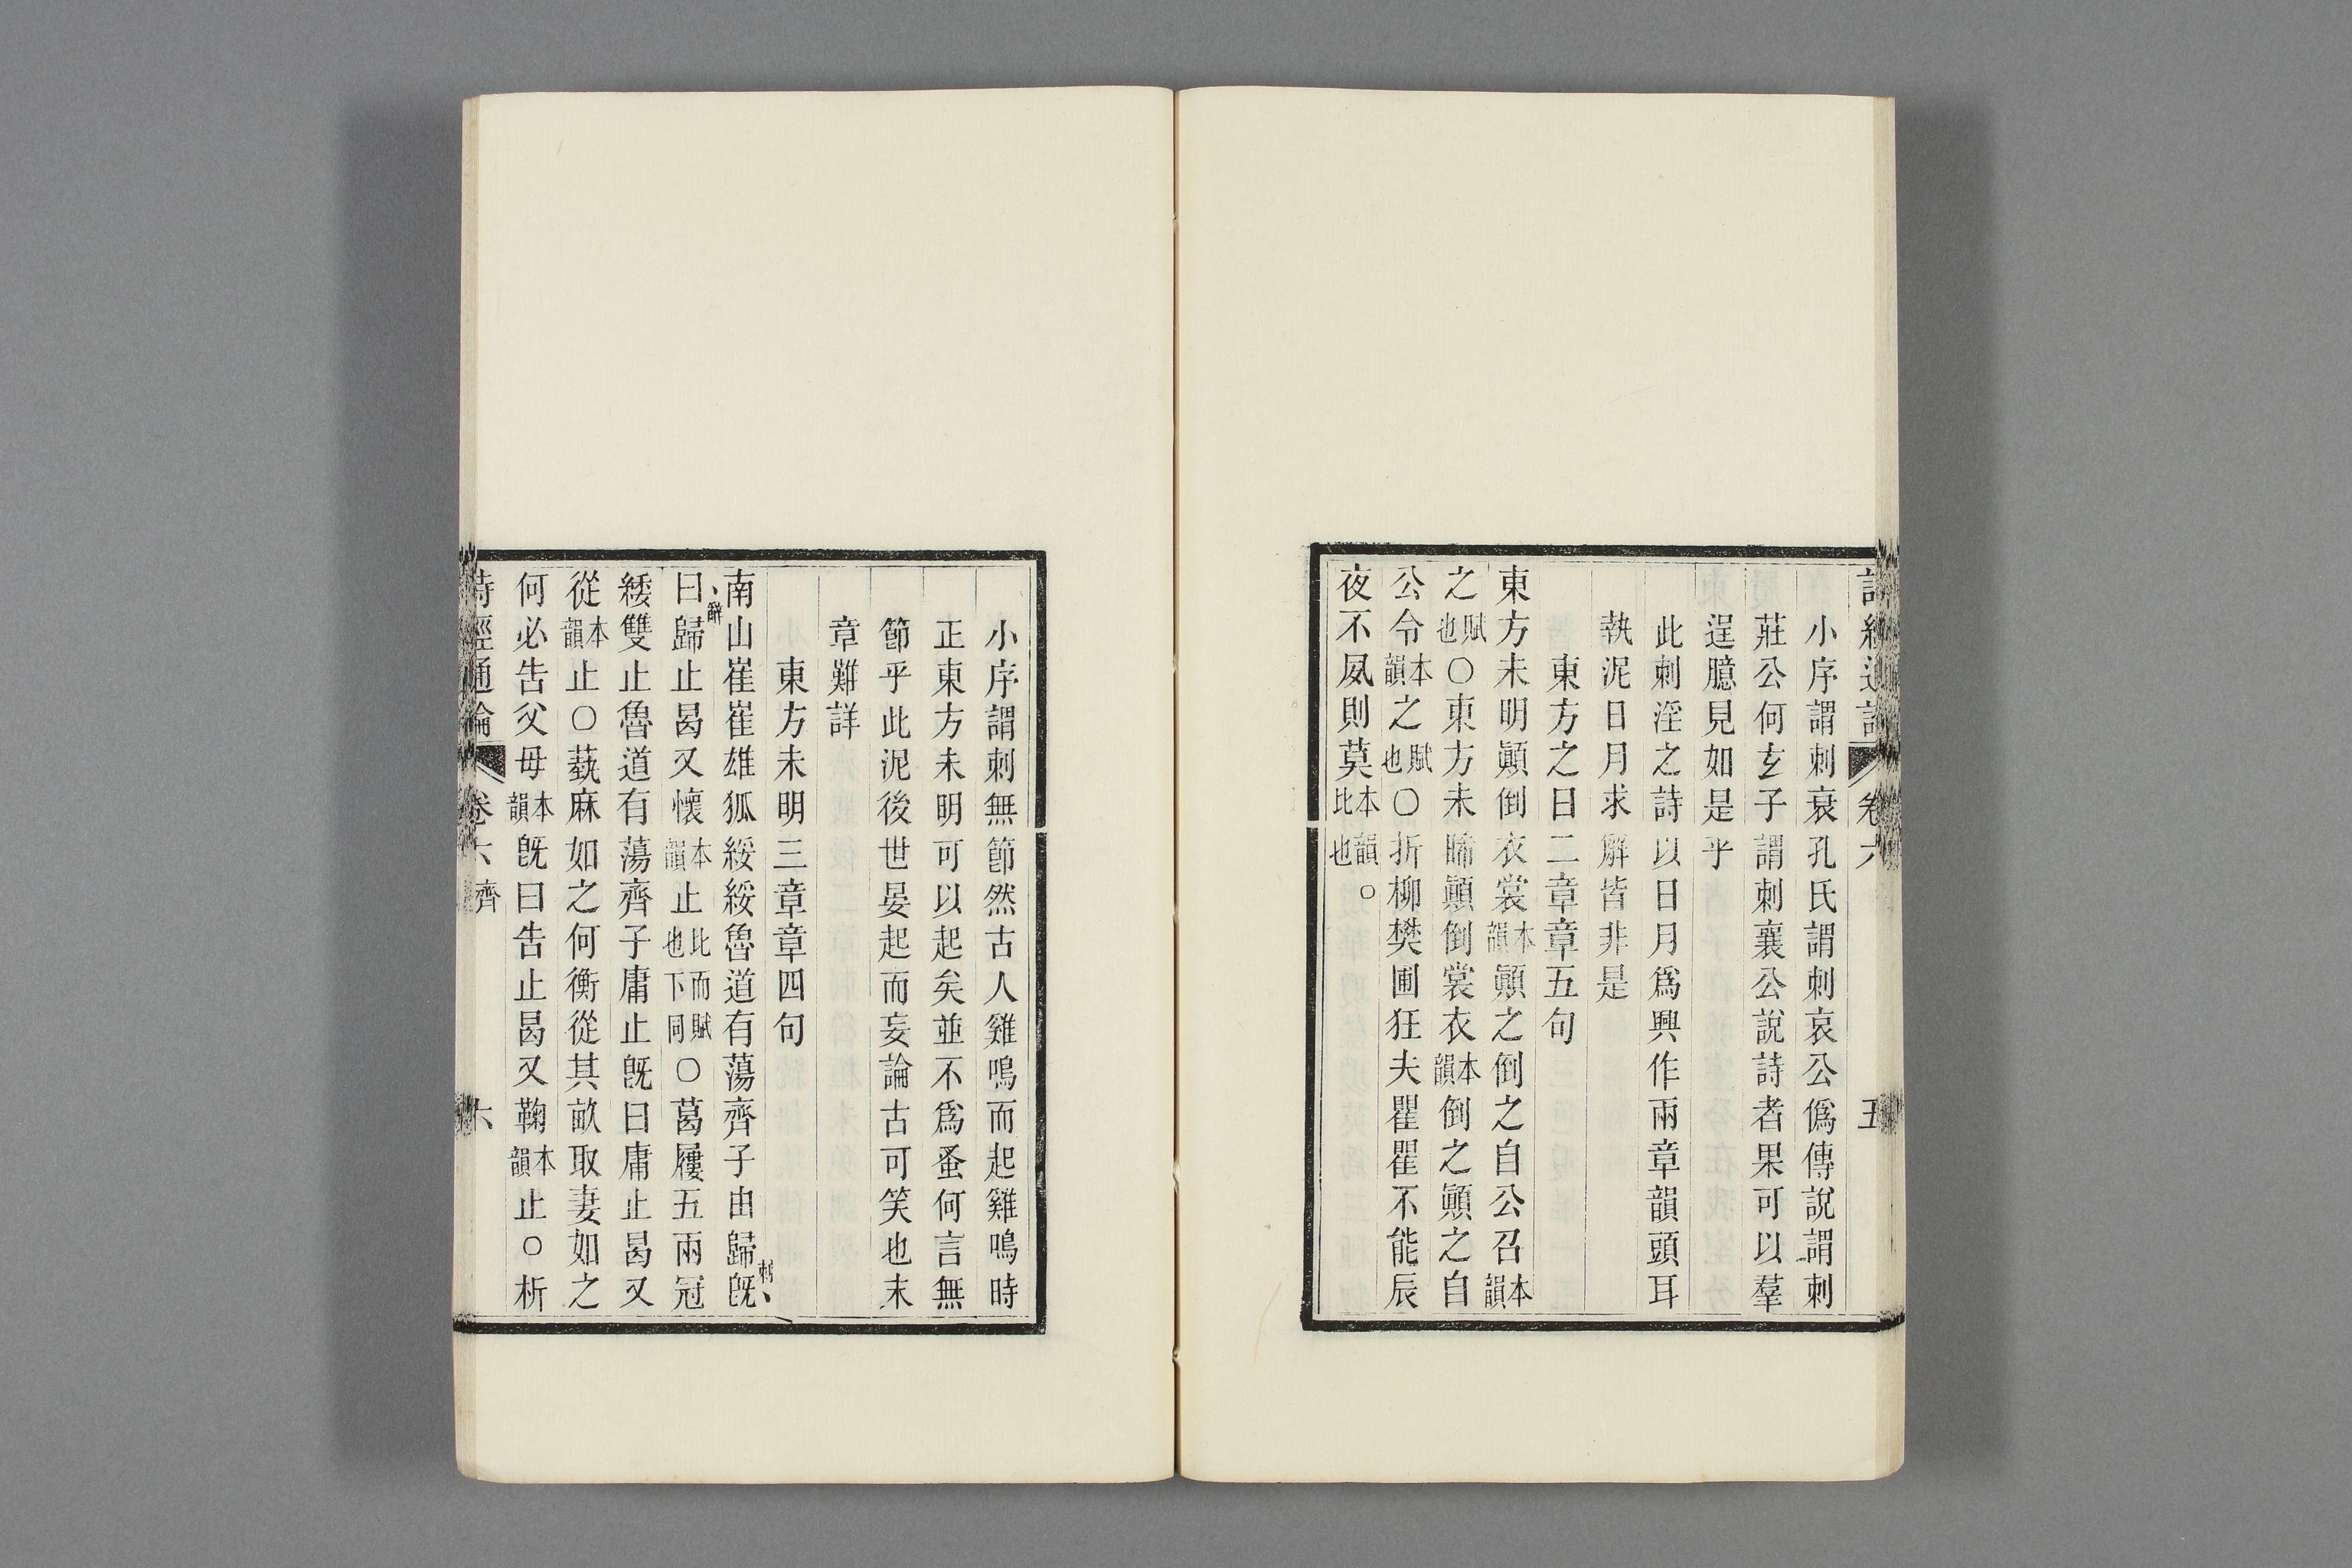 詩經通論 卷六 五
小序謂刺衰孔氏謂刺哀公僞傳說謂刺
莊公何玄子謂刺襄公說詩者果可以羣
逞臆見如是乎
此刺淫之詩以日月爲興作兩章韻頭耳
執泥日月求解皆非是
東方之日二章章五句
東方未明顚倒衣裳本韻顚之倒之自公召本韻
之賦也○東方未晞顚倒裳衣本韻倒之顚之自
公令本韻之賦也○折柳樊圃狂夫瞿瞿不能辰
夜不夙則莫本韻比也○
小序謂刺無節然古人雞鳴而起雞鳴時
正東方未明可以起矣並不爲蚤何言無
節乎此泥後世晏起而妄論古可笑也末
章難詳
東方未明三章章四句
南山崔崔雄狐綏綏魯道有蕩齊子由歸既刺
曰歸止曷又懷本韻止比而賦也下同○葛屨五兩冠
緌雙止魯道有蕩齊子庸止既曰庸止曷又
從本韻止○蓺麻如之何衡從其畝取妻如之
何必告父母本韻既曰告止曷又鞠本韻止○析
詩經通論 卷六 齊 六